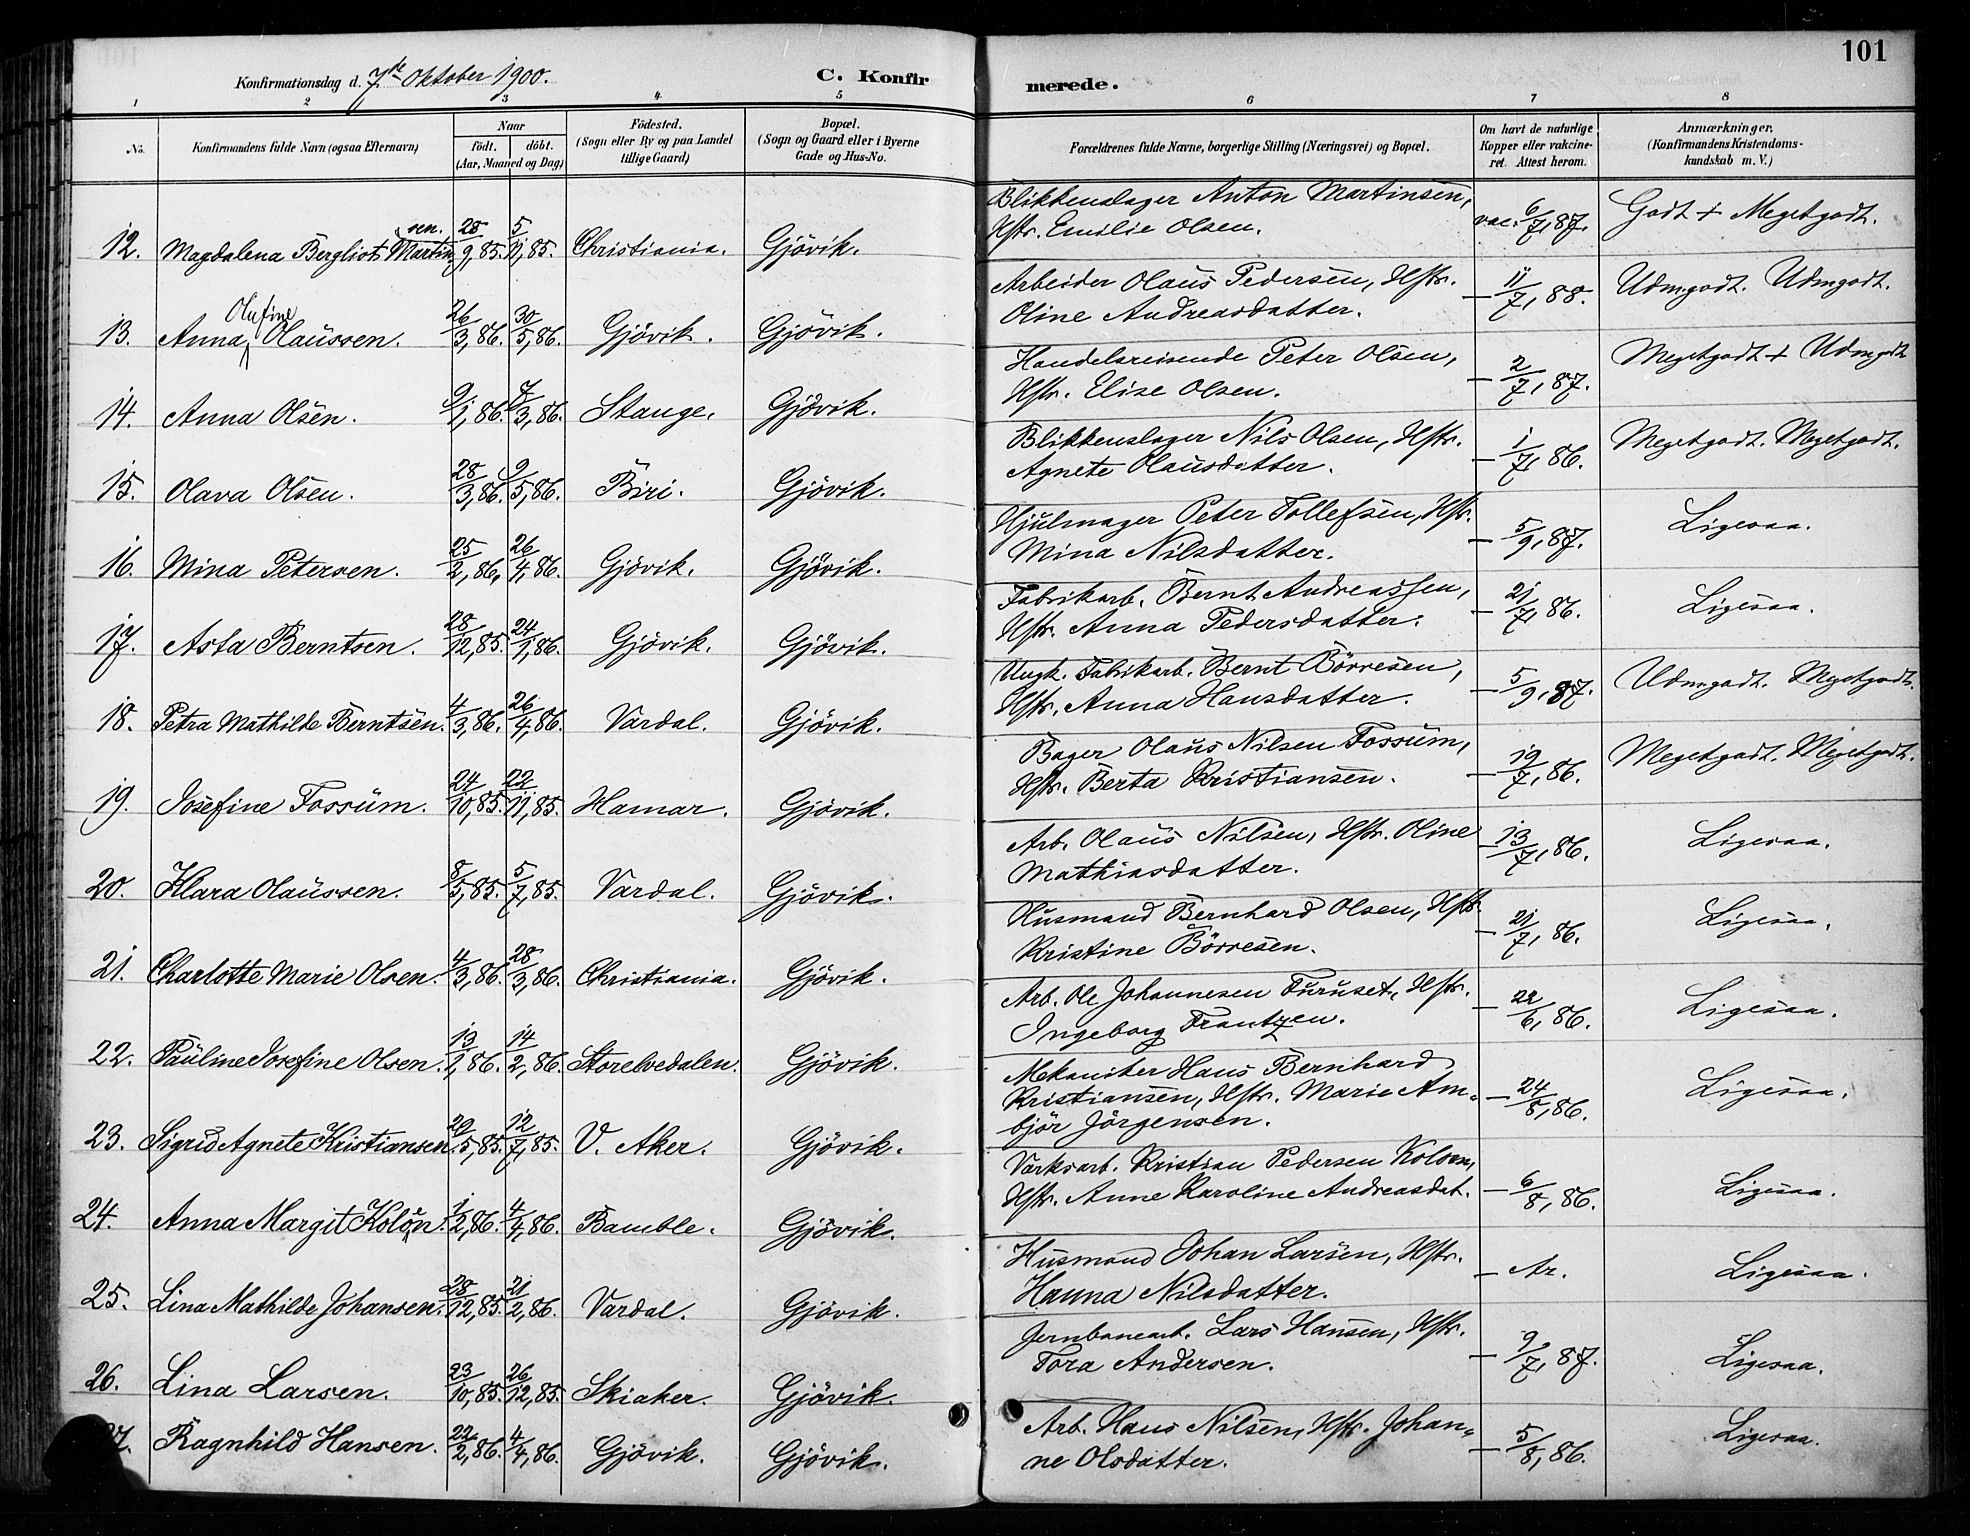 101
Konfirmationsdag d. 7de Oktober 1900.
C. Konfir
merede.
1 2 3 4 5 6 7 8
No.
Konfirmandens fulde Navn (ogsaa Efternavn)
Naar
født. døbt.
(Aar, Maaned og Dag)
Fødested.
(Sogn eller By og paa Landet
tillige Gaard)
Bopæl.
(Sogn og Gaard eller i Byerne
Gade og Hus-No.
Forældrenes fulde Navne, borgerlige Stilling (Næringsvei) og Bopæl.
Om havt de naturlige
Kopper eller vakcine-
ret. Attest herom.
Anmærkninger.
(Konfirmandens Kristendoms-
kundskab m. V.)
12. Magdalena Bergliot Martinsen. 28/9, 85. 5/11, 85. Christiania. Gjövik. Blikkenslager Anton Martinsen,
Hstr. Emilie Olsen. vac. 6/7, 87. Godt + Megetgodt.
13. Anna Olufine Olaussen. 26/3, 86. 30/5, 86. Gjövik. Gjövik. Arbeider Olaus Pedersen, Hstr.
Oline Andreasdatter. — 11/7, 88. Udmgodt. Udmgodt.
14. Anna Olsen. 9/1, 86. 7/3, 86. Stange. Gjövik. Handelsreisende Peter Olsen,
Hstr. Elise Olsen. — 2/7, 87. Megetgodt + Udmgodt
15. Olava Olsen. 28/3, 86. 9/5, 86. Biri. Gjövik. Blikkenslager Nils Olsen, Hstr.
Agnete Olausdatter. — 1/7, 86. Megetgodt. Megetgodt.
16. Mina Petersen. 25/2, 86. 26/4, 86. Gjövik. Gjövik. Hjulmager Peter Tollefsen, Hstr.
Mina Nilsdatter. — 5/9, 87. Ligesaa.
17. Asta Berntsen. 28/12, 85. 24/1, 86. Gjövik. Gjövik. Fabrikarb. Bernt Andreassen,
Hstr. Anna Pedersdatter. — 21/7, 86. Ligesaa.
18. Petra Mathilde Berntsen. 4/3, 86. 26/4, 86. Vardal. Gjövik. Ungk. Fabrikarb. Bernt Börresen,
Hstr. Anna Hansdatter. — 5/9, 87. Udmgodt. Megetgodt.
19. Josefine Fossum. 24/10, 85. 22/11, 85. Hamar. Gjövik. Bager Olaus Nilsen Fossum,
Hstr. Berta Kristiansen. — 19/7, 86. Megetgodt. Megetgodt.
20. Klara Olaussen. 8/5, 85. 5/7, 85. Vardal. Gjövik. Arb. Olaus Nilsen, Hstr. Oline
Mathiasdatter. — 13/7, 86. Ligesaa.
21. Charlotte Marie Olsen. 4/3, 86. 28/3, 86. Christiania. Gjövik. Husmand Bernhard Olsen, Hstr.
Kristine Börresen. — 21/7, 86. Ligesaa.
22. Pauline Josefine Olsen. 13/1, 86. 14/2, 86. Storelvedalen. Gjövik. Arb. Ole Johannesen Furuset, Hstr.
Ingeborg Frantzen. — 22/6, 86. Ligesaa.
23. Sigrid Agnete Kristiansen. 29/5, 85. 12/7, 85. V. Aker. Gjövik. Mekaniker Hans Bernhard
Kristiansen, Hstr. Marie Am-
björ Jörgensen. — 24/8, 86. Ligesaa.
24. Anna Margit Koloen. 1/2, 86. 4/4, 86. Bamble. Gjövik. Værksarb. Kristian Pedersen Koloen,
Hstr. Anne Karoline Andreasdat. — 6/8, 86. Ligesaa.
25. Lina Mathilde Johansen. 28/12, 85. 21/2, 86. Vardal. Gjövik. Husmand Johan Larsen, Hstr.
Hanna Nilsdatter. — Ar. Ligesaa.
26. Lina Larsen. 23/10, 85. 26/12, 85. Skiaker. Gjövik. Jernbanearb. Lars Hansen, Hstr.
Tora Andersen. — 9/7, 87. Ligesaa.
7. Ragnhild Hansen. 22/2, 86. 4/4, 86. Gjövik. Gjövik. Arb. Hans Nilsen, Hstr. Johan-
ne Olsdatter. — 5/8, 86. Ligesaa.